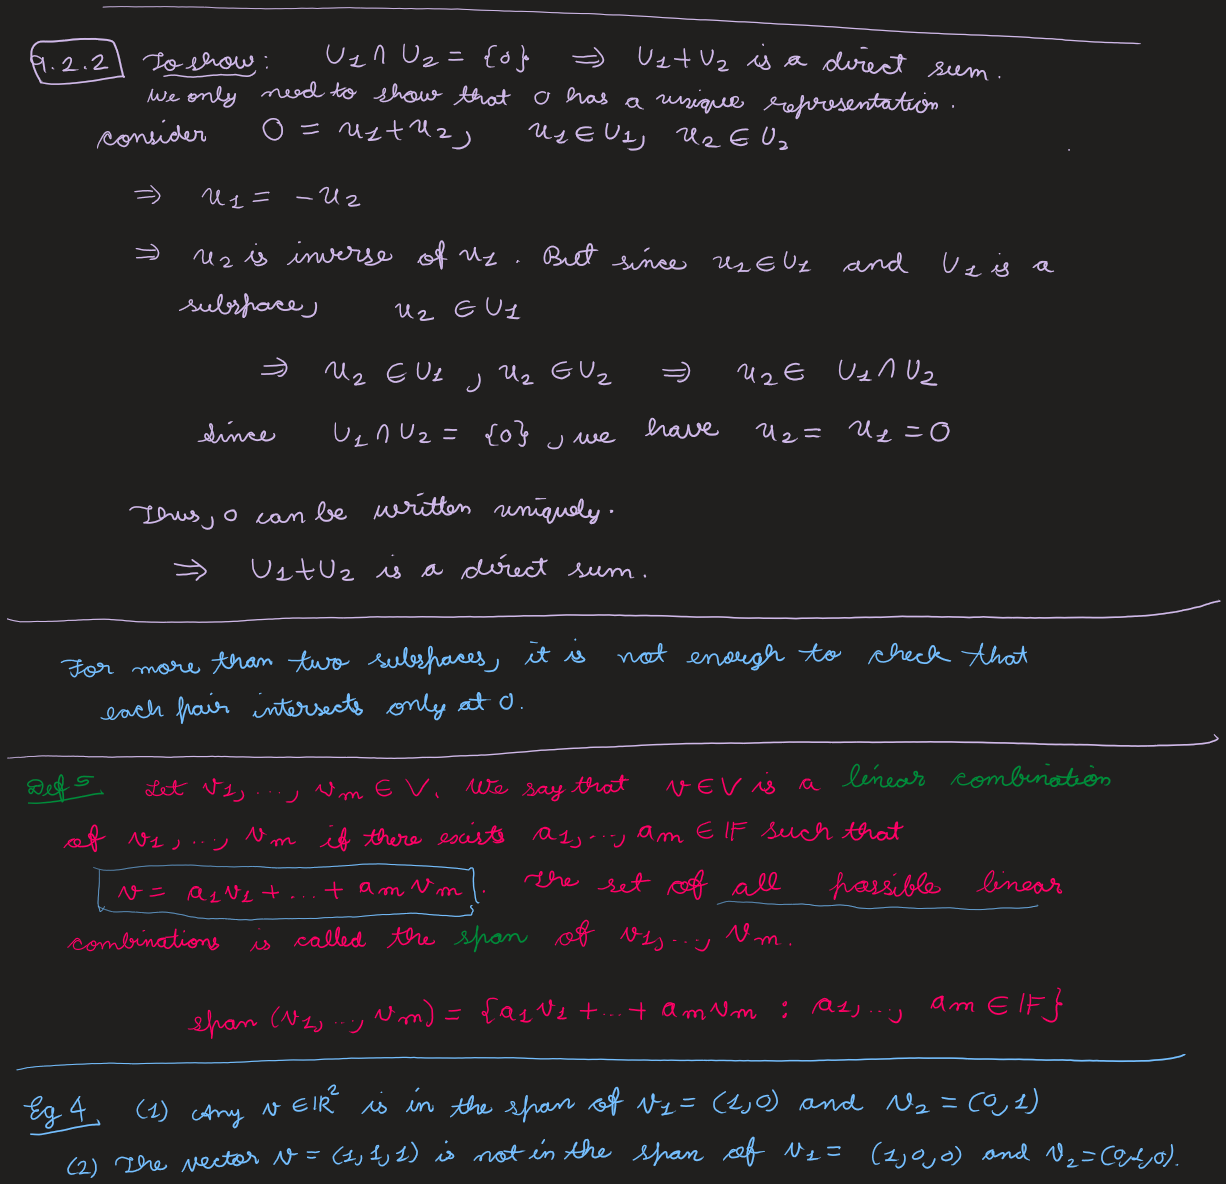 9.2.2 To show: U1 ∩ U2 = {0} ⇒ U1+U2 is a direct sum.
We only need to show that 0 has a unique representation.
consider 0 = u1+u2, u1 ∈ U1, u2 ∈ U2
⇒ u1 = -u2
⇒ u2 is inverse of u1. But since u1 ∈ U1 and U1 is a
subspace, u2 ∈ U1
⇒ u2 ∈ U1, u2 ∈ U2 ⇒ u2 ∈ U1 ∩ U2
Since U1 ∩ U2 = {0}, we have u2 = u1 = 0
Thus, 0 can be written uniquely.
⇒ U1+U2 is a direct sum.
For more than two subspaces, it is not enough to check that
each pair intersects only at 0.
Def 5. Let v1, ..., vm ∈ V. We say that v ∈ V is a linear combination
of v1, ..., vm if there exists a1, ..., am ∈ 𝔽 such that
v = a1v1 + ... + amvm. The set of all possible linear
combinations is called the span of v1, ..., vm.
span (v1, ..., vm) = {a1v1 + ... + amvm : a1, ..., am ∈ 𝔽}
Eg 4 (1) Any v ∈ ℝ² is in the span of v1 = (1,0) and v2 = (0,1)
(2) The vector v = (1,1,1) is not in the span of v1 = (1,0,0) and v2 = (0,1,0).